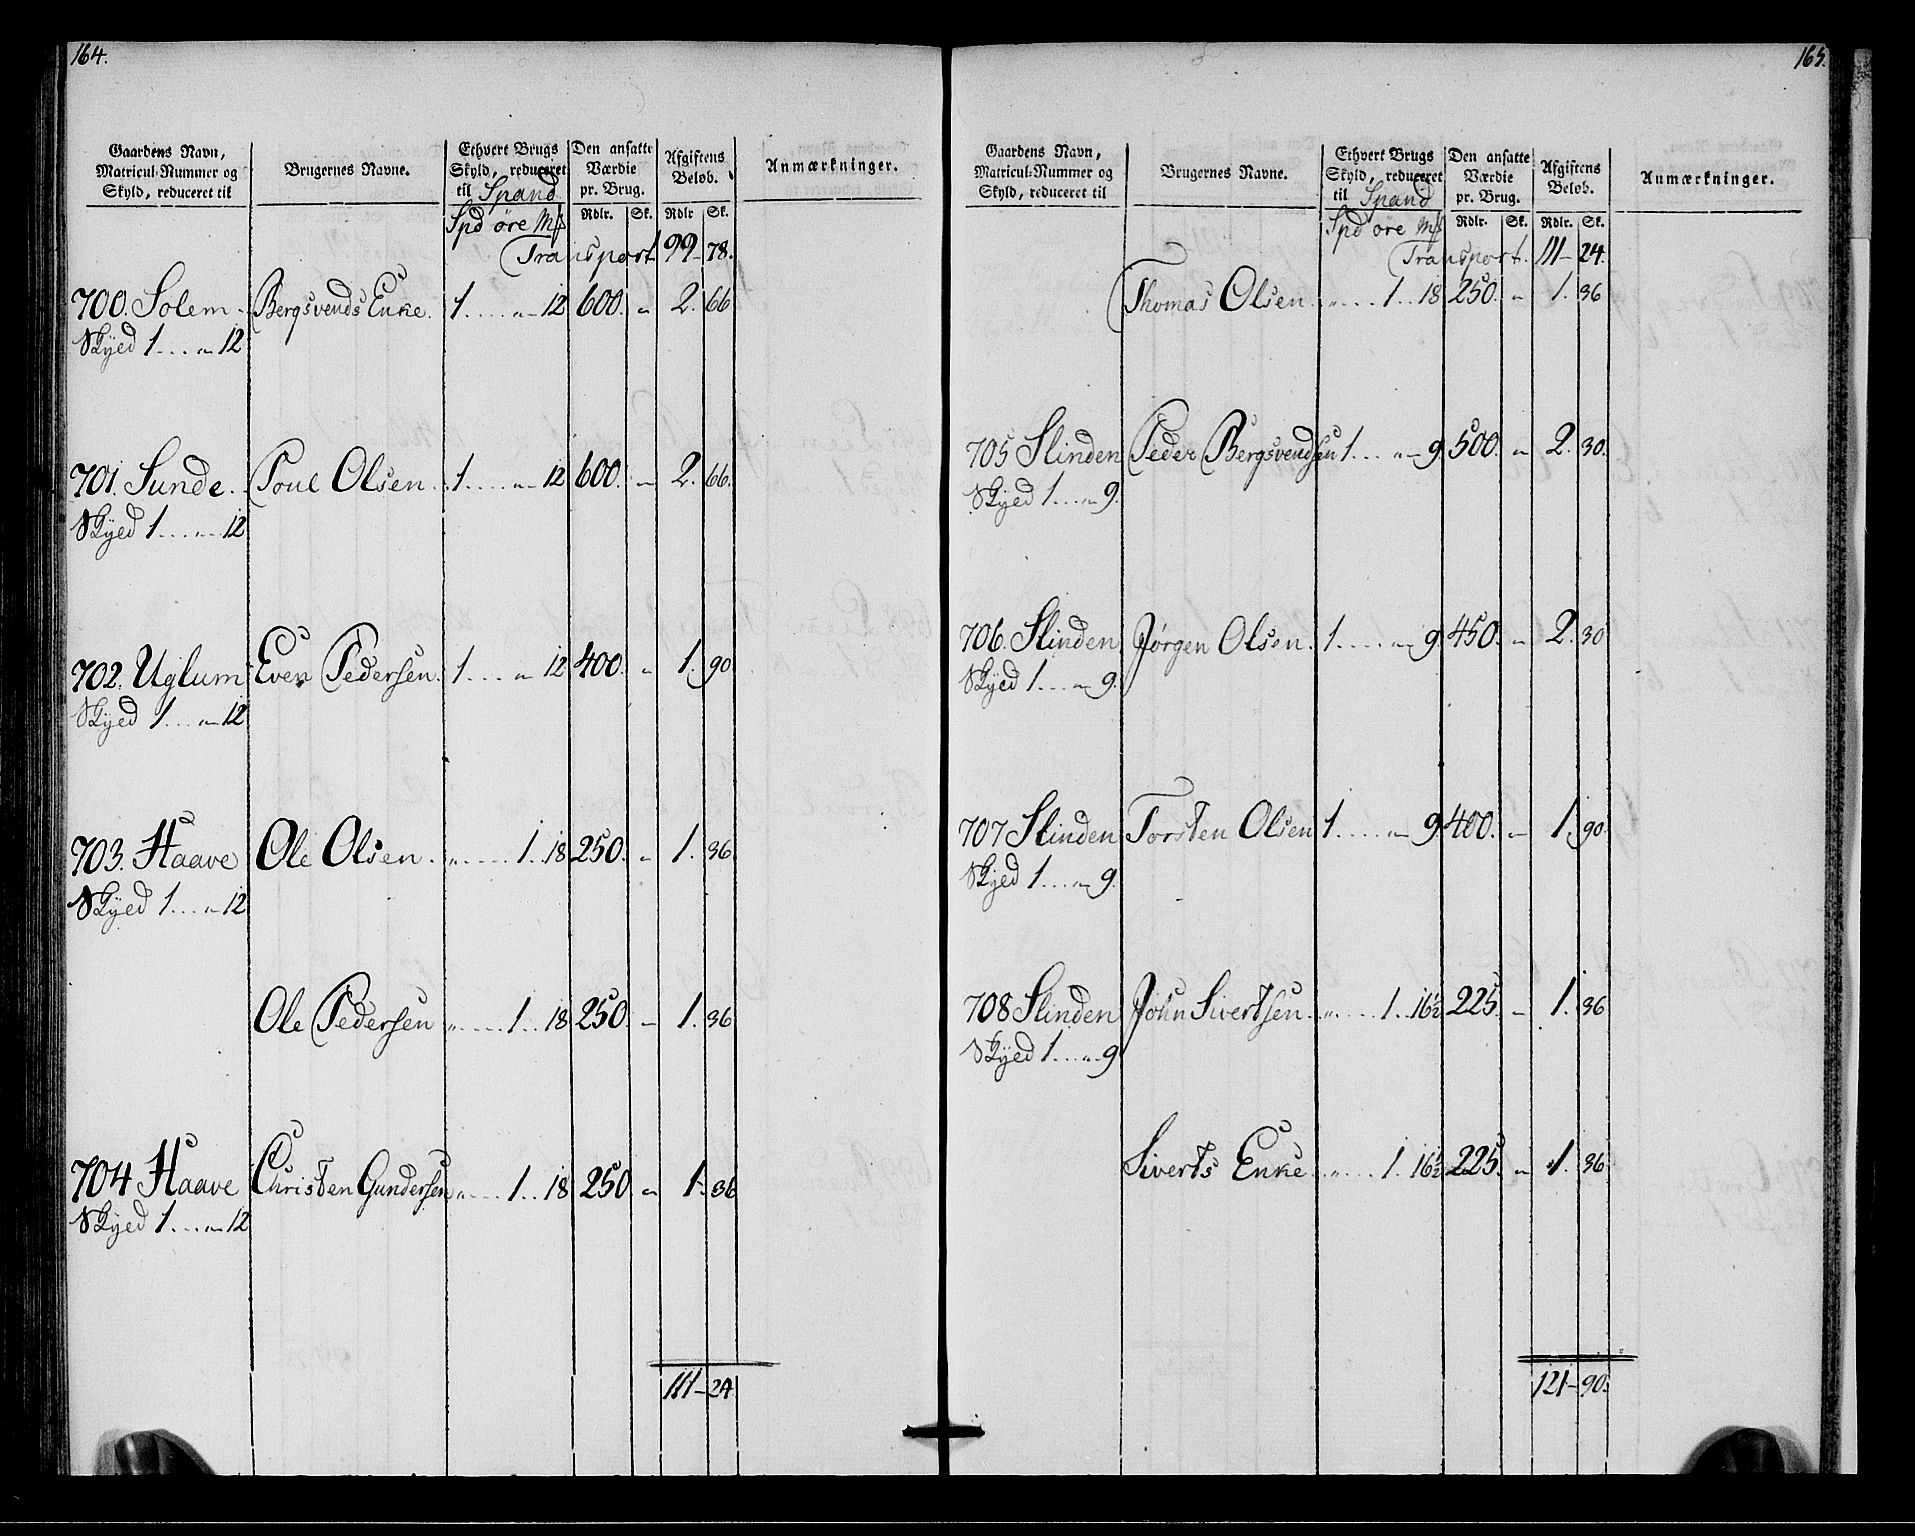 164.
Gaardens Navn, Matricul-Nummer og Skyld, reduceret til | Brugernes Navne. | Ethvert Brugs Skyld, reduceret til Spand | Den ansatte Værdie pr. Brug. | Afgiftens Beløb. | Anmærkninger.
Spd øre Mk | Rdlr. | Sk. | Rdlr | Sk.
Transport 99 - 78.
700. Solem. Bergsvends Enke. 1 .... „ - 12 600. „ 2. 66
Skyed 1 ... „ - 12
701. Sunde. Poul Olsen. 1 .... „ - 12 600. „ 2. 66.
Skyed 1 .... „ - 12
702. Uglum Even Pedersen. 1 .... „ 12 400. „ 1. 90
Skyed 1 ... „ - 12
703. Haave Ole Olsen. „ ..... 1 .. 18 250. „ 1. 36
Skyed 1 ... „ 12
Ole Pedersen „ ..... 1 .. 18 250. „ 1. 36
704 Haave Christen Gundersen „ .... 1 .. 18 250 „ 1. 36
Skyed 1 ... „ 12
111 - 24
165.
Gaardens Navn, Matricul-Nummer og Skyld, reduceret til | Brugernes Navne. | Ethvert Brugs Skyld, reduceret til Spand | Den ansatte Værdie pr. Brug. | Afgiftens Beløb. | Anmærkninger.
Spd øre Mk | Rdlr. | Sk. | Rdlr. | Sk.
Transport. 111 - 24.
Thomas Olsen. „ .... 1 .. 18 250. „ 1. 36
705 Slinden Peder Bergsvendsen 1 ... „ - 9. 500. „ 2. 30.
Skyed 1 ... „ 9.
706. Slinden Jørgen Olsen. 1 .... „ 9. 450. „ 2. 30
Skyed 1 ... „ 9.
707 Slinden Torsten Olsen 1 .... „ - 9 400. „ 1. 90.
Skyed 1 ... „ 9.
708 Slinden John Sivertsen. „ .... 1 .. 16½ 225. „ 1. 36
Skyed 1 ... „ 9
Siverts Enke. „ .... 1. 16½ 225. „ 1. 36
121 - 90.